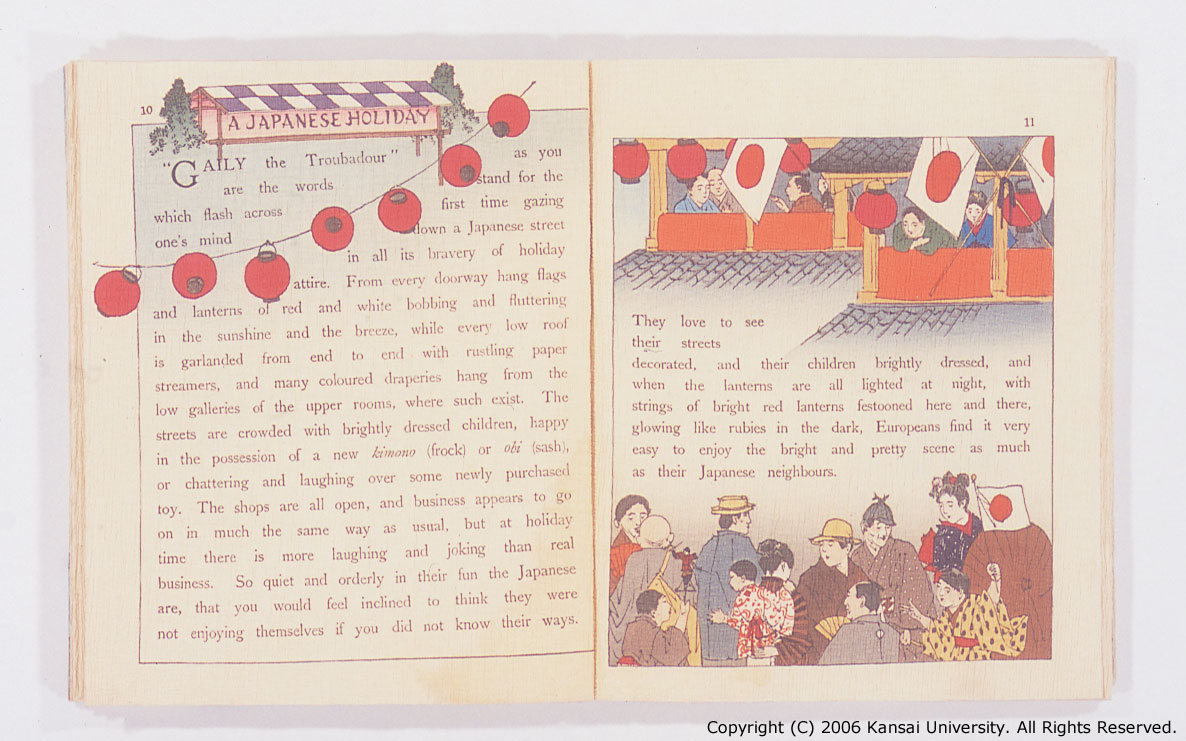 10
A JAPANESE HOLIDAY
"GAILY the Troubadour" as you
are the words stand for the
which flash across first time gazing
one's mind down a Japanese street
in all its bravery of holiday
attire. From every doorway hang flags
and lanterns of red and white bobbing and fluttering
in the sunshine and the breeze, while every low roof
is garlanded from end to end with rustling paper
streamers, and many coloured draperies hang from the
low galleries of the upper rooms, where such exist. The
streets are crowded with brightly dressed children, happy
in the possession of a new kimono (frock) or obi (sash),
or chattering and laughing over some newly purchased
toy. The shops are all open, and business appears to go
on in much the same way as usual, but at holiday
time there is more laughing and joking than real
business. So quiet and orderly in their fun the Japanese
are, that you would feel inclined to think they were
not enjoying themselves if you did not know their ways.
11
They love to see
their streets
decorated, and their children brightly dressed, and
when the lanterns are all lighted at night, with
strings of bright red lanterns festooned here and there,
glowing like rubies in the dark, Europeans find it very
easy to enjoy the bright and pretty scene as much
as their Japanese neighbours.
Copyright (C) 2006 Kansai University. All Rights Reserved.